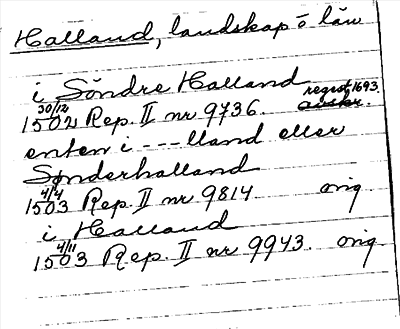 Halland, landskap o län
i Söndre Halland
30/12 1502 Rep. II nr 9736. regist 1693. avskr.
enten i ---lland eller
Sønderhalland
4/4 1503 Rep. II nr 9814 orig.
i Halland
4/11 1503 Rep. II nr 9943. orig.